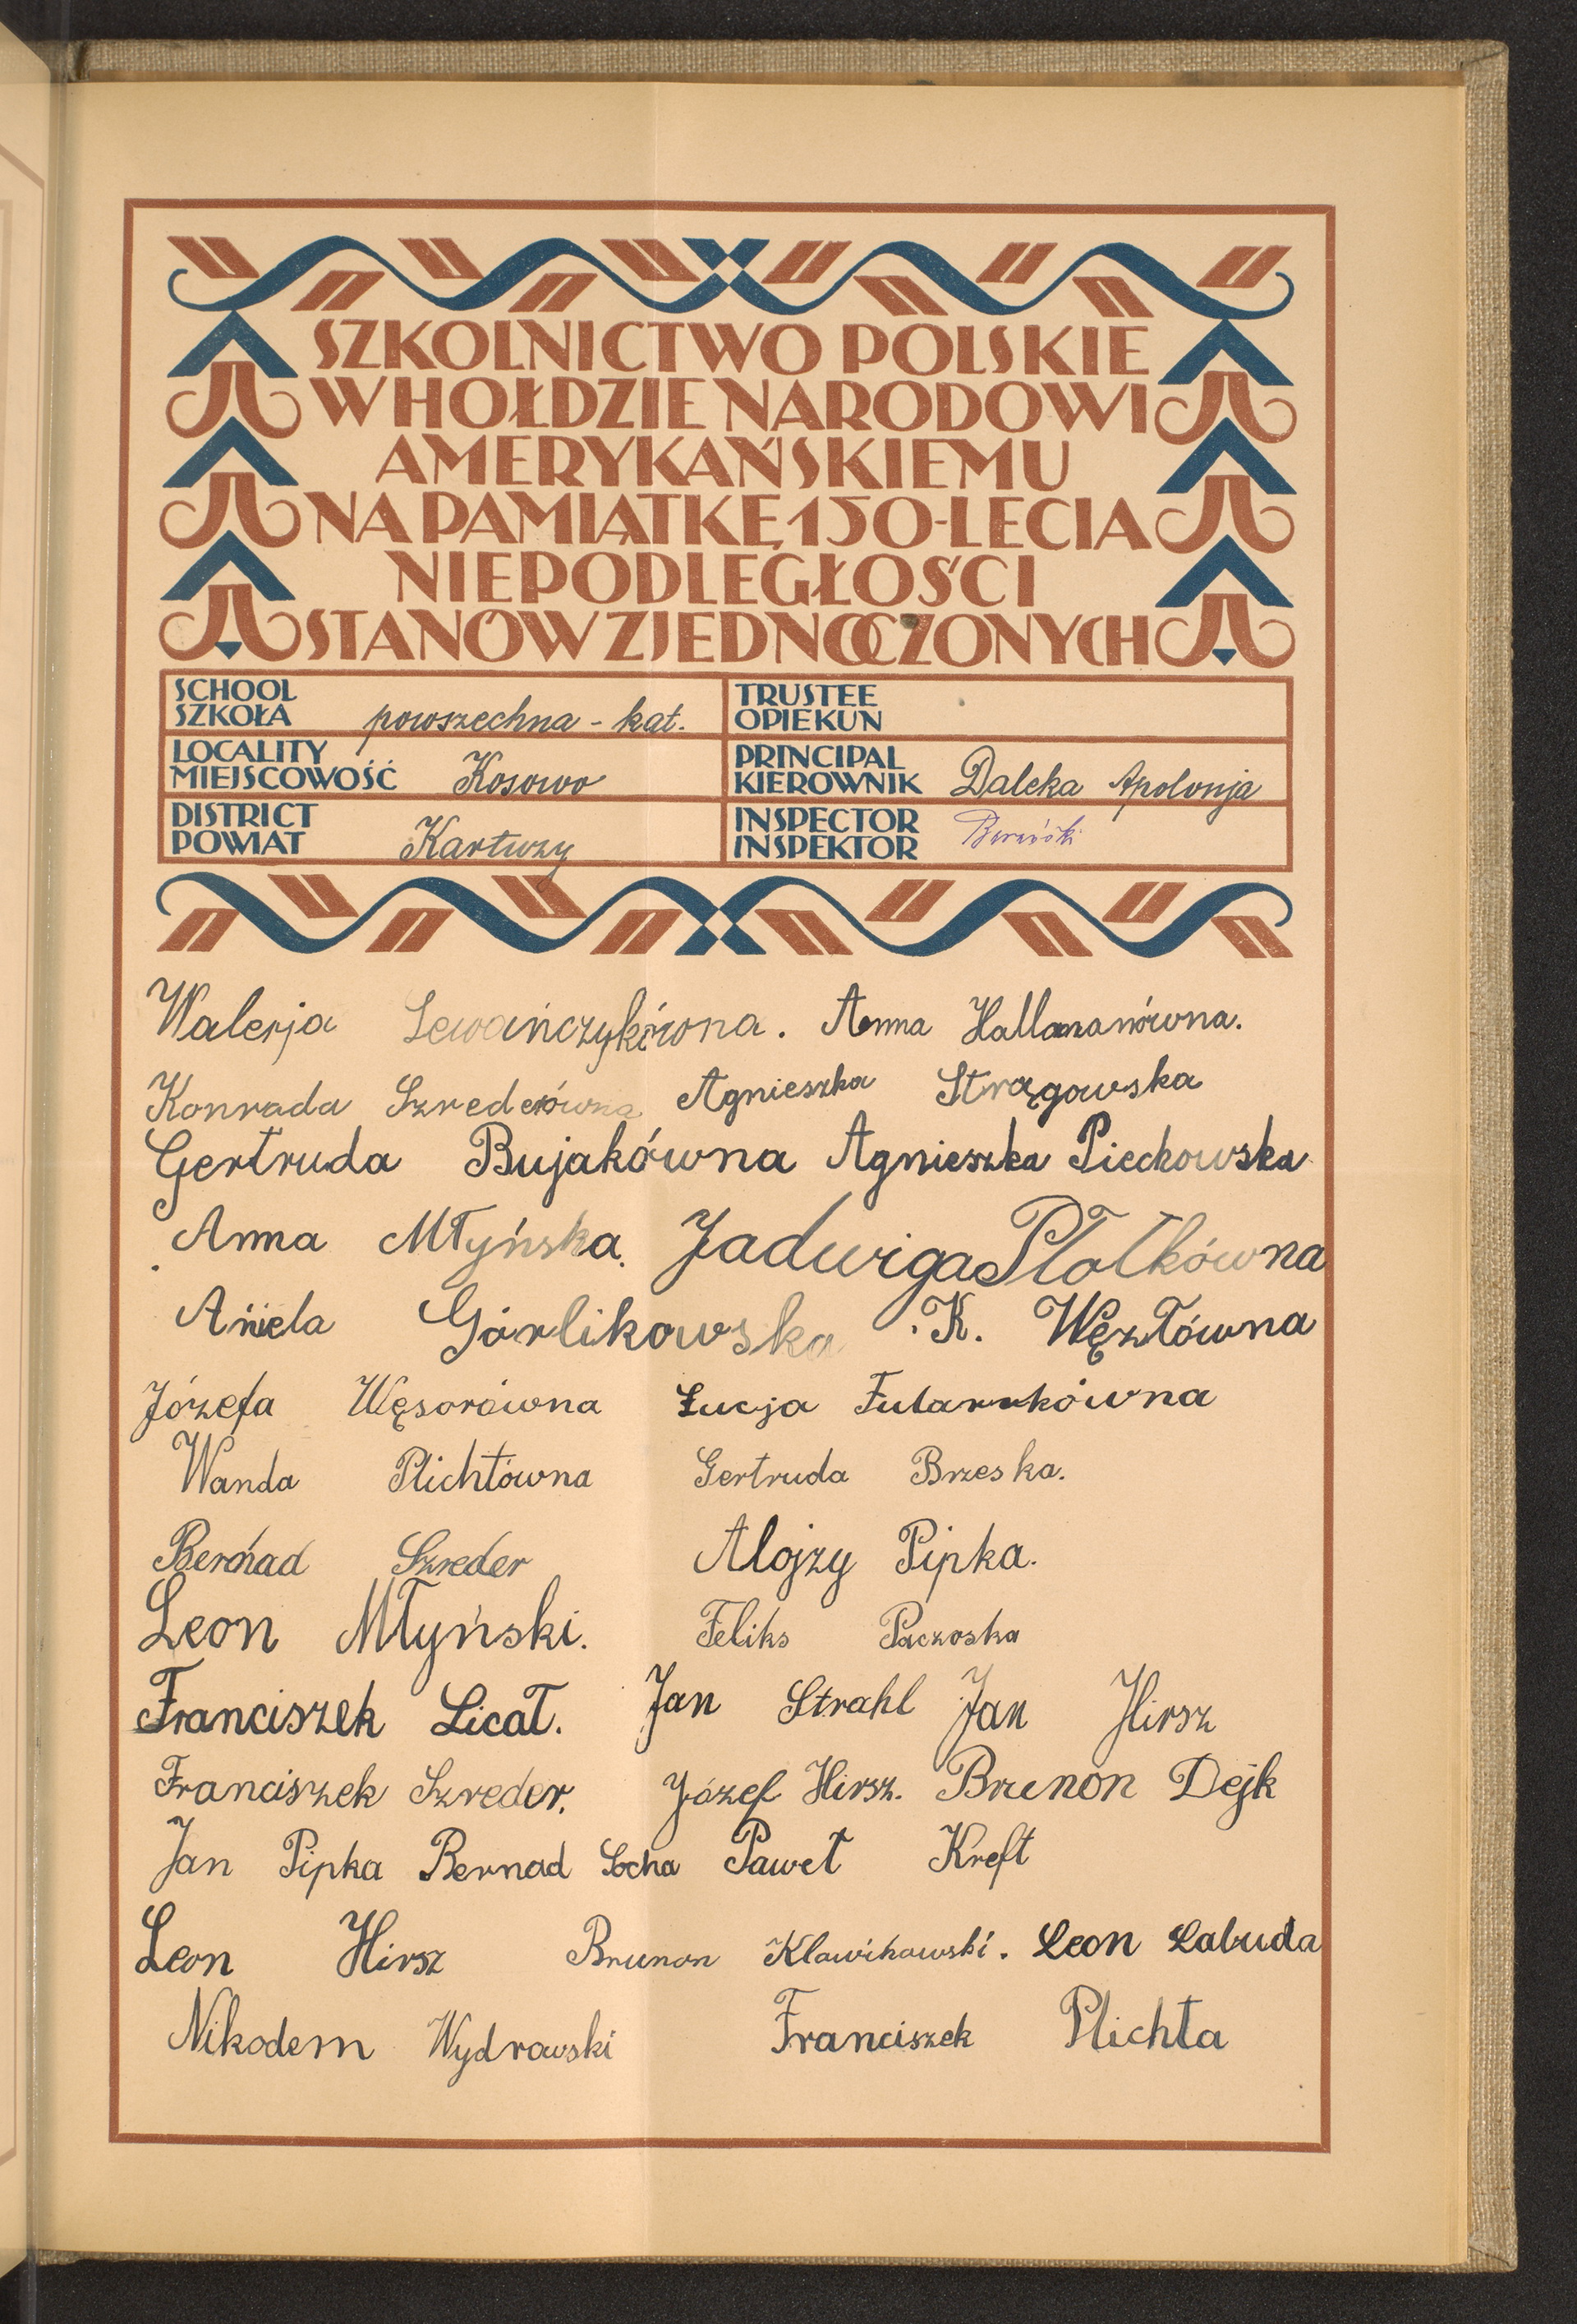 SZKOLNICTWO POLSKIE
W HOŁDZIE NARODOWI
AMERYKAŃSKIEMU
NA PAMIĄTKĘ 150-LECIA
NIEPODLEGŁOŚCI
STANÓW ZJEDNOCZONYCH
SCHOOL
SZKOŁA powszechna - kat.
TRUSTEE
OPIEKUN
LOCALITY
MIEJSCOWOŚĆ Kosowo
PRINCIPAL
KIEROWNIK Daleka Apolonja
DISTRICT
POWIAT Kartuzy
INSPECTOR
INSPEKTOR
Walerja Lewańczykówna. Anna Hallmanówna.
Konrada Szrederówna Agnieszka Strągowska
Gertruda Bujakówna Agnieszka Piechowska
Anna Młyńska. Jadwiga Płotkówna
Aniela Górlikowska K. Węzłówna
Józefa Węsorówna Łucja
Wanda Plichtówna Gertruda Brzeska.
Bernad Szreder Alojzy Pipka.
Leon Młyński. Feliks Paczoska
Franciszek Licał. Jan Strahl Jan Hirsz
Franciszek Szreder. Józef Hirsz. Brunon Dejk
Jan Pipka Bernad Socha Paweł Kreft
Leon Hirsz Brunon Klawikowski. Leon Labuda
Nikodem Wydrowski Franciszek Plichta